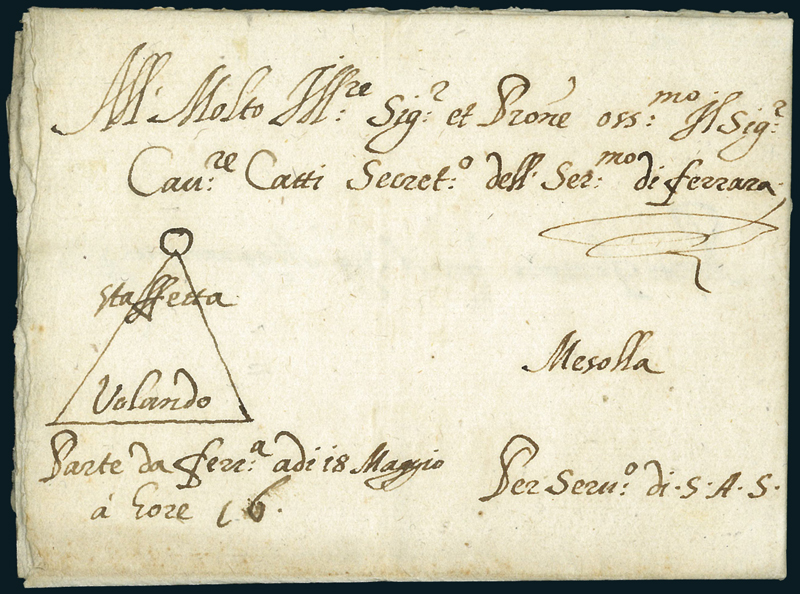 All: Molto Ill:re Sig:r et Prone oss:mo Il Sig:r
Cau:re Catti Secret:o dell: Ser:mo di ferrara
staffetta
Volando
Mesolla
Parte da ferr:a adi 18 Maggio
á hore 16.
Per Seru:o di · S · A · S ·